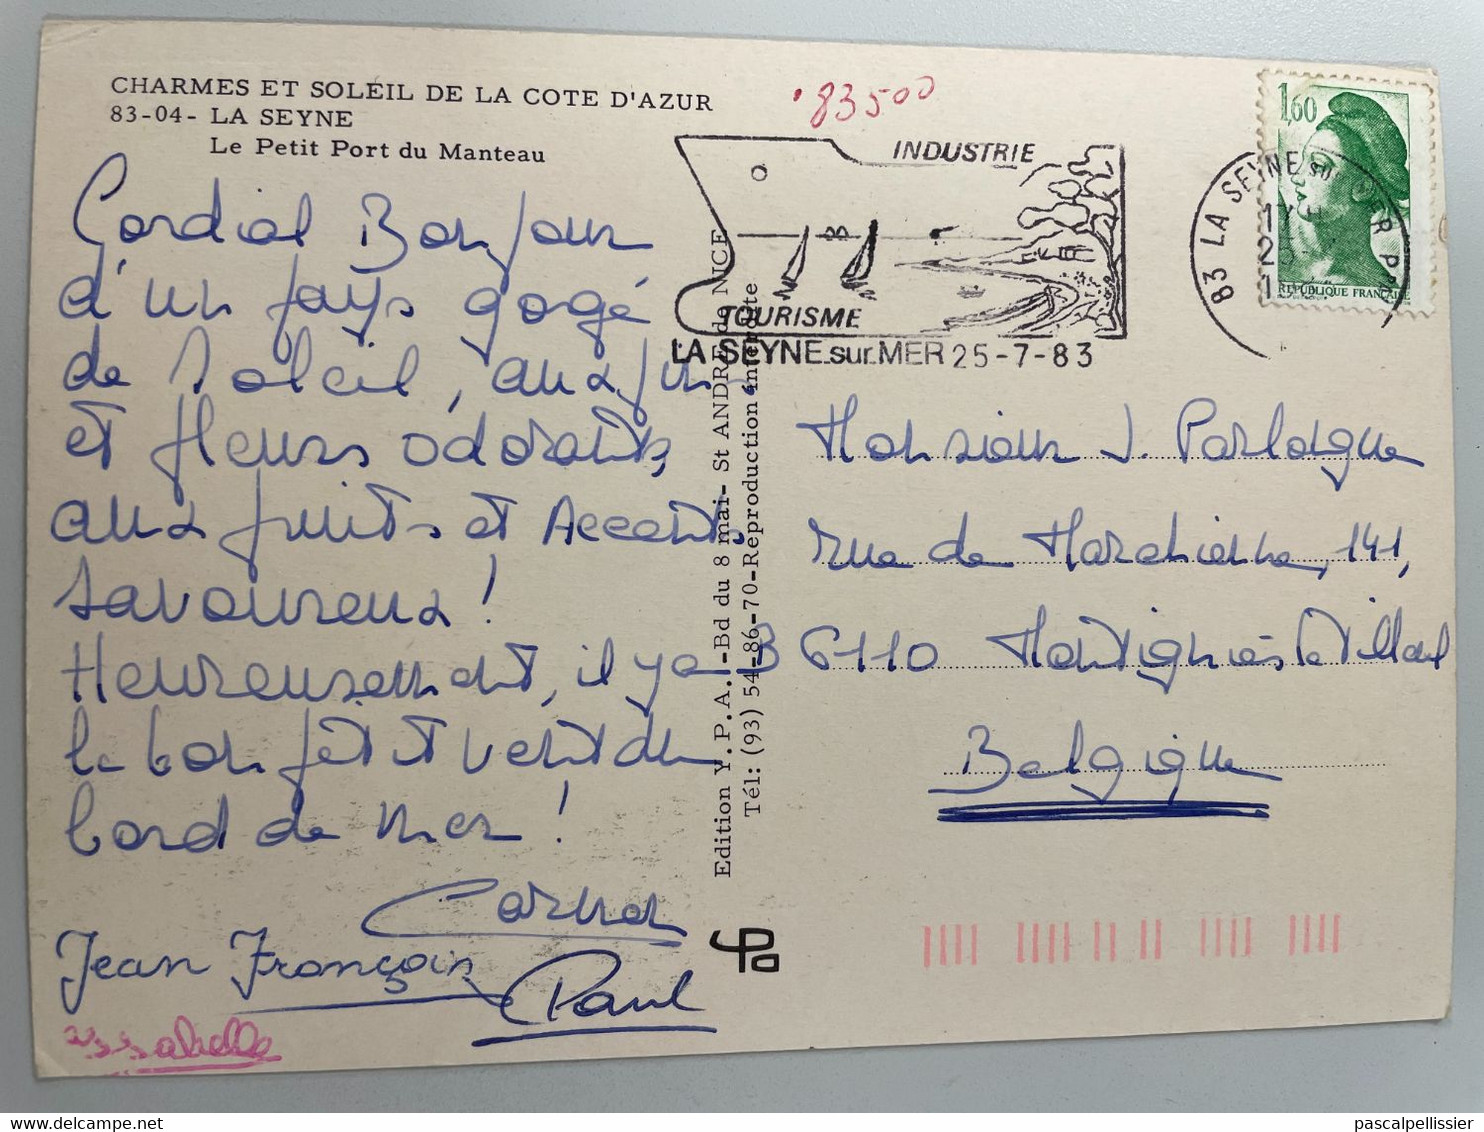 CHARMES ET SOLEIL DE LA COTE D'AZUR
83-04- LA SEYNE
Le Petit Port du Manteau
83500
INDUSTRIE
TOURISME
LA SEYNE sur MER 25-7-83
83 LA SEYNE SUR MER
1,60
REPUBLIQUE FRANCAISE
Cordial Bonjour
d'un pays gorgé
de soleil, aux
et fleurs odorants,
aux fruits et Accents
savoureux !
Heureusement, il y a
le bon petit vent du
bord de mer !
Carmen
Jean François
Paul
Issabelle
Edition Y.P.A.-Bd du 8 mai- St ANDRE de NICE
Tél: (93) 54-86-70-Reproduction interdite
Monsieur J. Parloigne
rue de Marchienne, 141,
B 6110 Montignies le Tilleul
Belgique
pascalpellissier